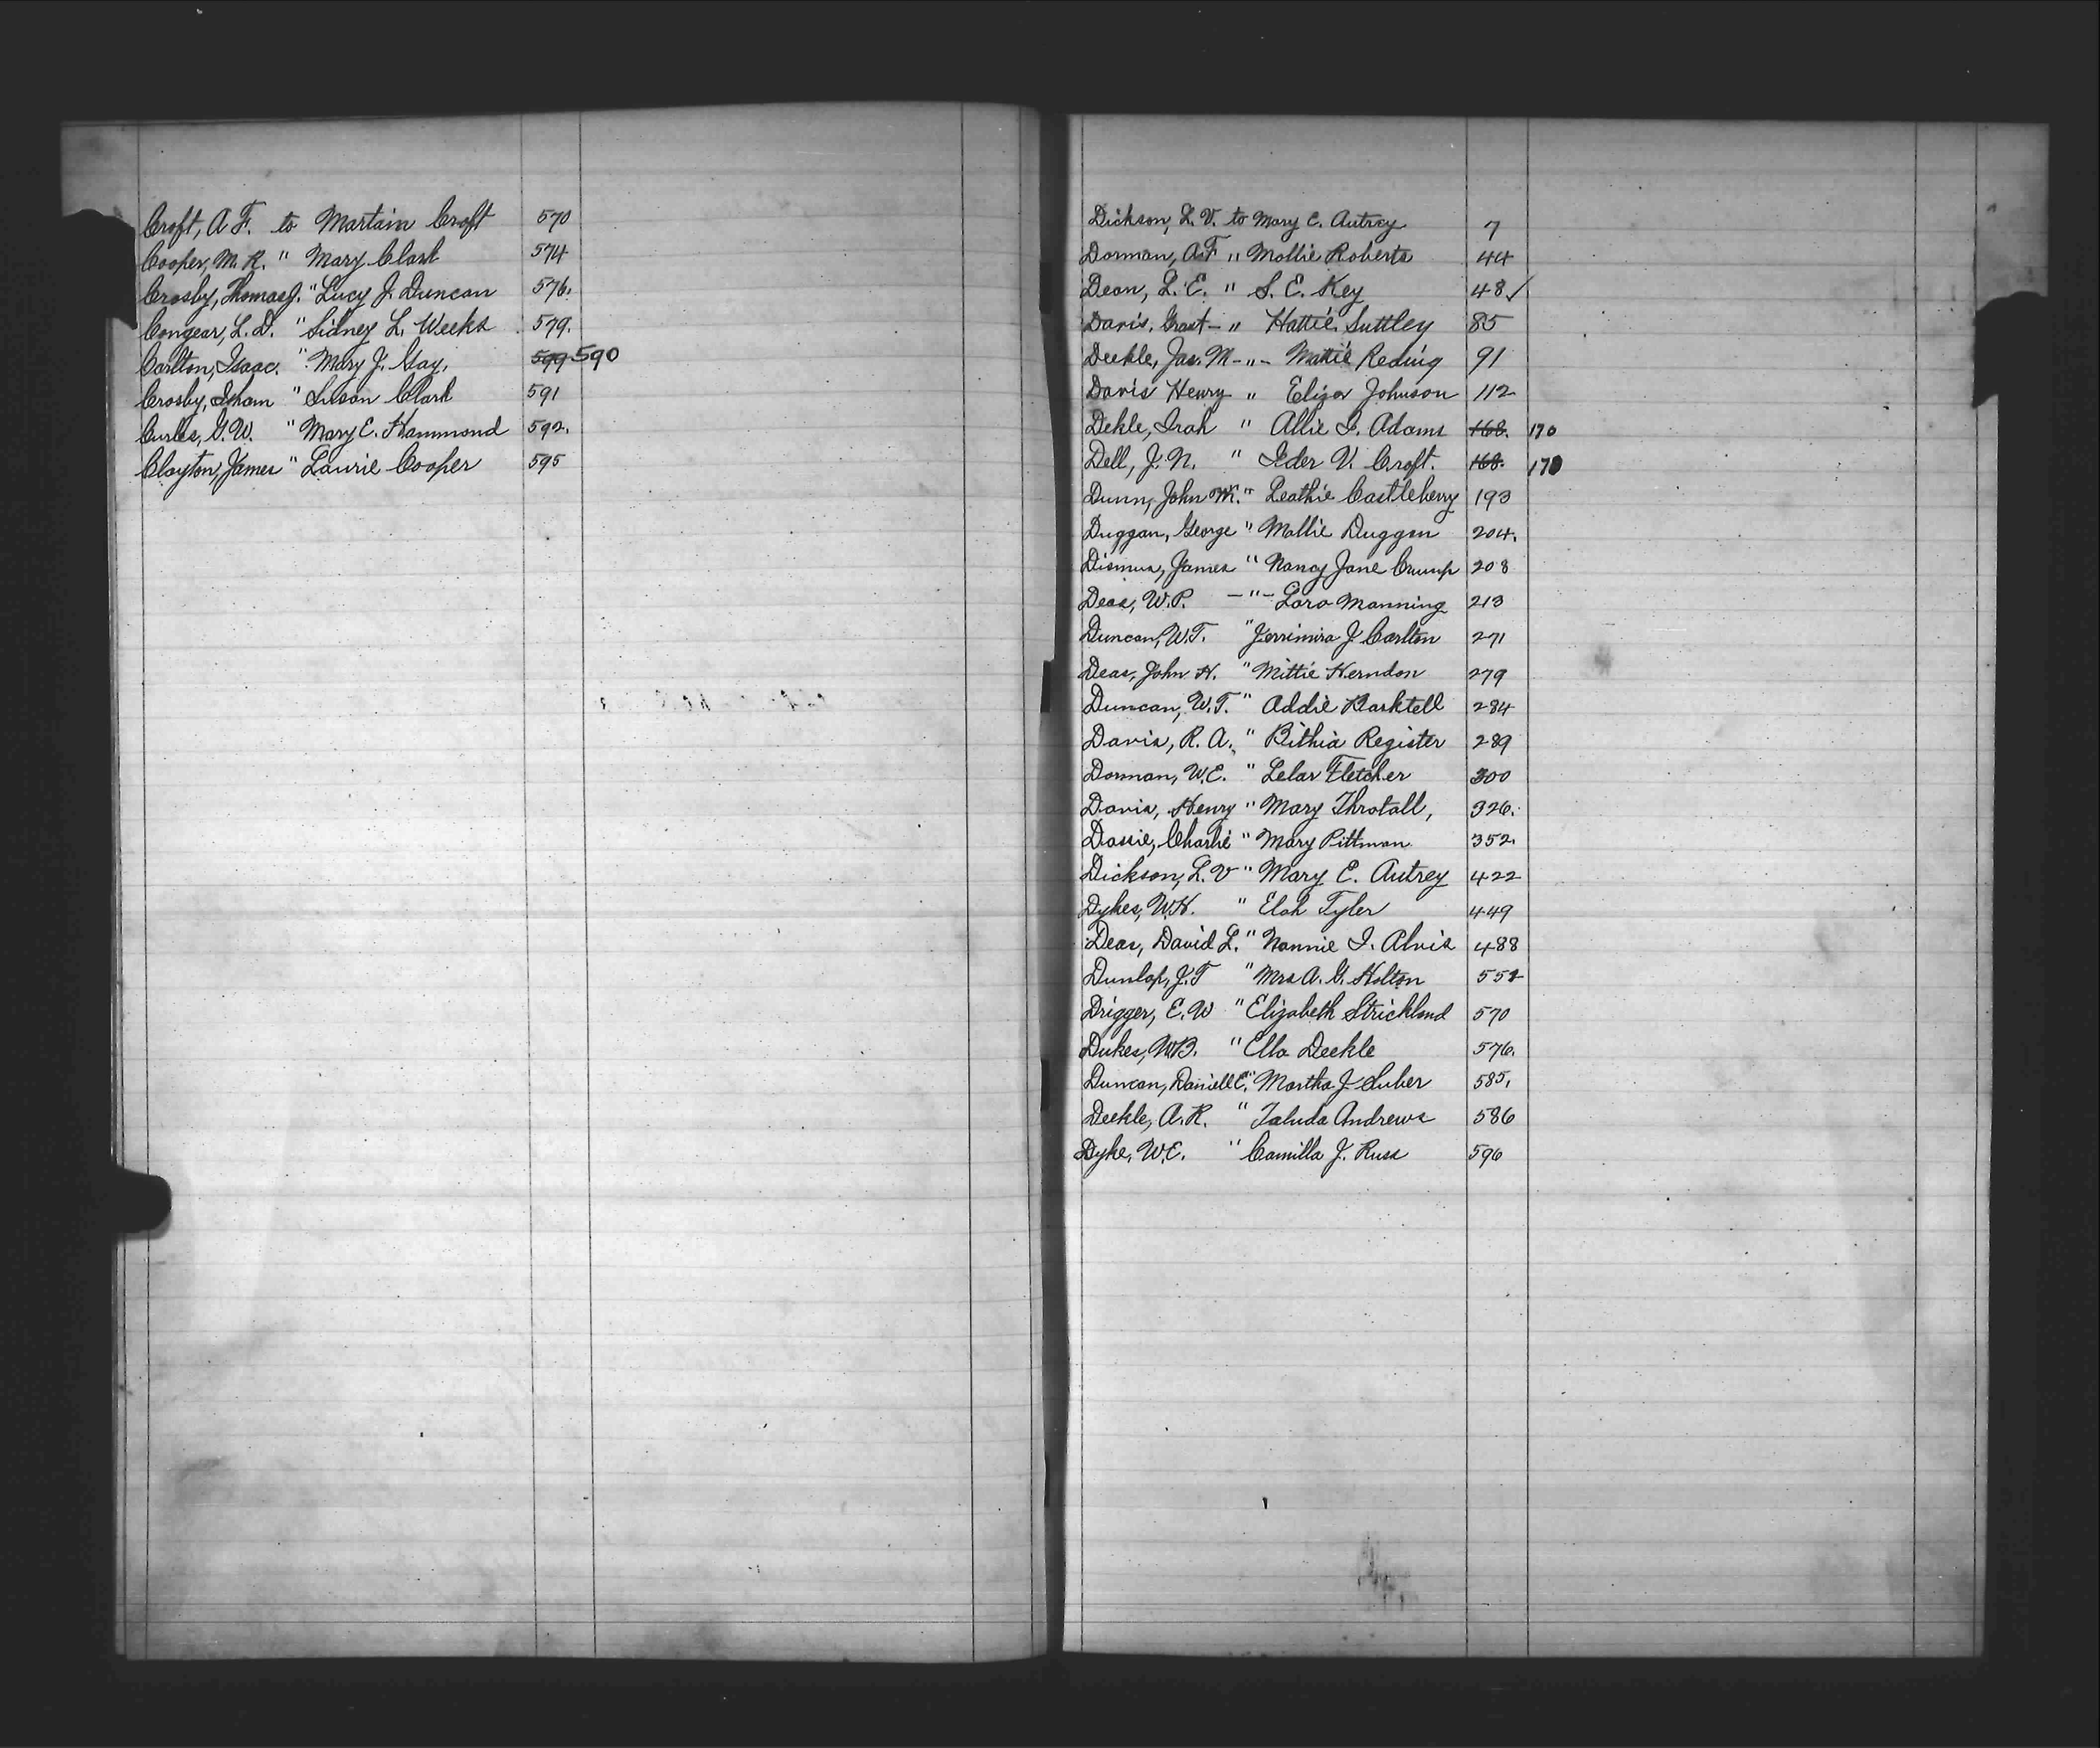 Croft, A F. to Martain Croft 570
Cooper, M. R. " Mary Clark 574
Crosby, Thomas J. " Lucy J. Duncan 576.
Congear, L. D. " Sidney L. Weeks 579.
Carlton, Isaac. " Mary J. Gay, 599 590
Crosby, Isham " Susan Clark 591
Curles, G. W. " Mary E. Hammond 592.
Clayton, James " Laurie Cooper 595
Dickson, L. V. to Mary E. Autrey 7
Dorman, A.F " Mollie Roberts 44
Dean, L. E. " S. E. Key 48 ✓
Davis, Grant - " Hattie Suttley 85
Deekle, Jas. M - " - Mattie Reding 91
Davis Henry " Eliza Johnson 112
Dekle, Irah " Allie I. Adams 168. 170
Dell, J. N. " Ider V. Croft. 168. 170
Dunn, John M. " Leathie Castleberry 193
Duggan, George " Mollie Duggan 204.
Dismus, James " Nancy Jane Crump 208
Deas, W. P. - " - Lora Manning 213
Duncan, W. T. " Jerrimira J Carlton 271
Deas, John H. " Mittie Herndon 279
Duncan, W. T. " Addie Barktell 284
Davis, R. A., " Bithia Register 289
Dorman, W. E. " Lelar Fletcher 300
Davis, Henry " Mary Throtall, 326.
Dassie, Charlie " Mary Pittman 352.
Dickson, L. V " Mary E. Autrey 422
Dykes, W. H. " Elah Tyler 449
Deas, David L. " Nannie I. Alvis 488
Dunlap, J. T " Mrs A. G. Holton 552
Drigger, E. W " Elizabeth Strickland 570
Dukes, W. B. " Ella Deekle 576.
Duncan, Daniell E. " Martha J Suber 585,
Deekle, A. R. " Taluda Andrews 586
Dyke, W. E. " Camilla J. Russ 596